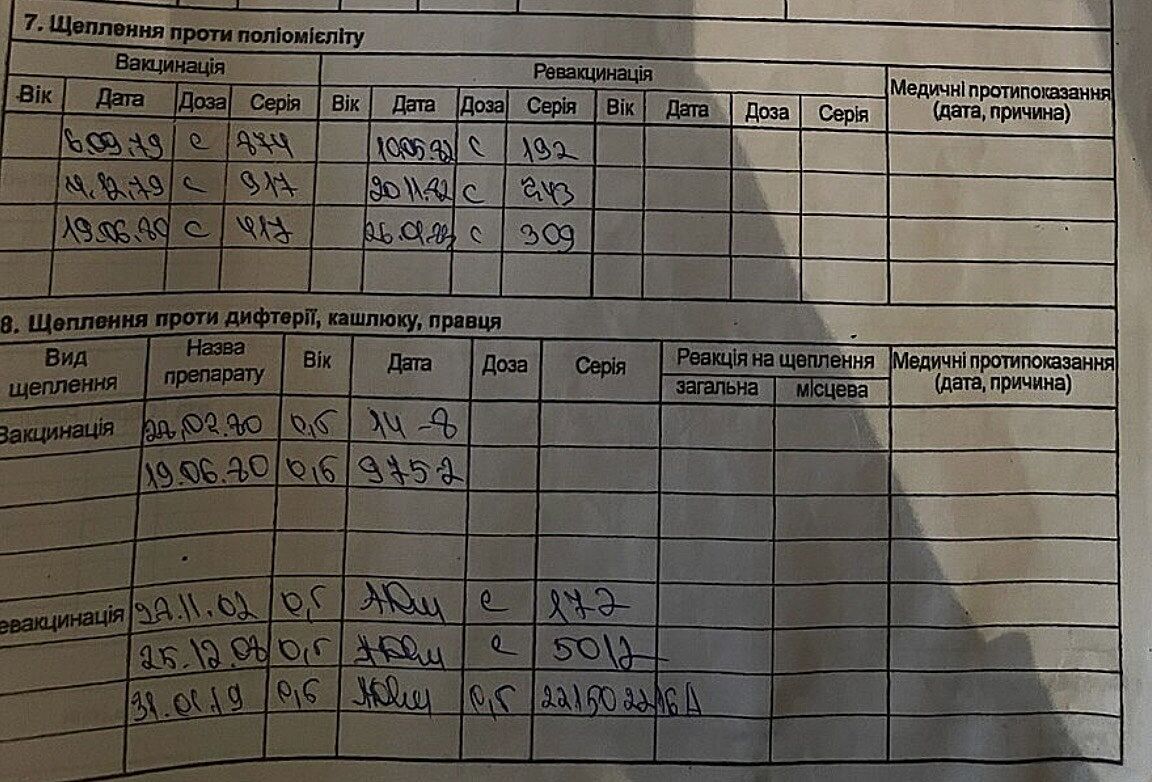 7. Щеплення проти поліомієліту
Вакцинація Ревакцинація Медичні протипоказання (дата, причина)
Вік Дата Доза Серія Вік Дата Доза Серія Вік Дата Доза Серія
6.09.79 с 774 10.05.82 с 192
12.79 с 917 20.11.82 с
19.06.80 с 417 с 309
8. Щеплення проти дифтерії, кашлюку, правця
Вид щеплення Назва препарату Вік Дата Доза Серія Реакція на щеплення Медичні протипоказання (дата, причина)
загальна місцева
Вакцинація 0,5 14-8
19.06.80 0,5 9752
евакцинація 27.11.02 0,5 АДпм с 172
25.12.02 0,5 АДпм с 5012
0,5 АДпм 0,5 221502216А